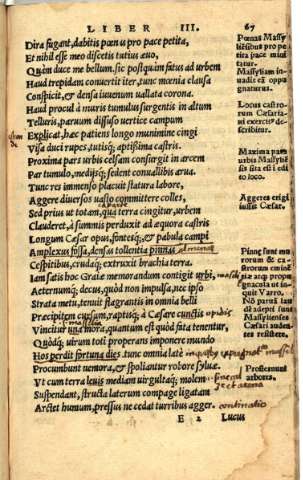 LIBER III. 67
Dira fugant, dabitis pœnas pro pace petita,
Et nihil esse meo discetis tutius ævo,
Quàm duce me bellum. sic postquam fatus ad urbem
Haud trepidam convertit iter, tunc mœnia clausa
Conspicit, & densa iuvenum vallata corona.
Haud procul à muris tumulus surgentis in altum
Telluris, parvum diffuso vertice campum
Explicat, hæc patiens longo munimine cingi
Visa duci rupes, tutisq; aptissima castris.
Proxima pars urbis celsam consurgit in arcem
Par tumulo, medijsq; sedent convallibus arua.
Tunc res immenso placuit statura labore,
Aggere diversos vasto committere colles,
Sed prius ut totam, qua terra cingitur, urbem
Clauderet, à summis perduxit ad æquora castris
Longum Cæsar opus, fontesq;, & pabula campi
Amplexus fossa, densas tollentia pinnas
Cespitibus, crudaq; extruxit brachia terra.
Iam satis hoc Graiæ memorandum contigit urbi,
Aeternumq; decus, quòd non impulsa, nec ipso
Strata metu, tenuit flagrantis in omnia belli
Præcipitem cursum, raptisq; à Cæsare cunctis
Vincitur una mora, quantum est quòd fata tenentur,
Quòdq; uirum toti properans imponere mundo
Hos perdit fortuna dies. tunc omnia latè
Procumbunt nemora, & spoliantur robore syluæ.
Vt cum terra leuis mediam uirgultaq; molem
Suspendant, structa laterum compage ligatam
Arctet humum, pressus ne cedat turribus agger.
E 2 Lucus
Pœnas Massy
liēsibus pro pe
tita pace mini
tatur.
Massyliam in
vadit & oppu
gnaturus.
Locus castro
rum Cæsaria
ni exercitꝰ de=
scribitur.
Maxima pars
urbis Massyliē
sis sita est i edi
to loco.
Aggeres erigi
iussit Cæsar.
Pinnę sunt mu
rorum & ca=
strorum emine
Varro.
No parua laus
Massylienses
Cæsari auden
tes resistere.
Prosternunt
arbores.
continatio